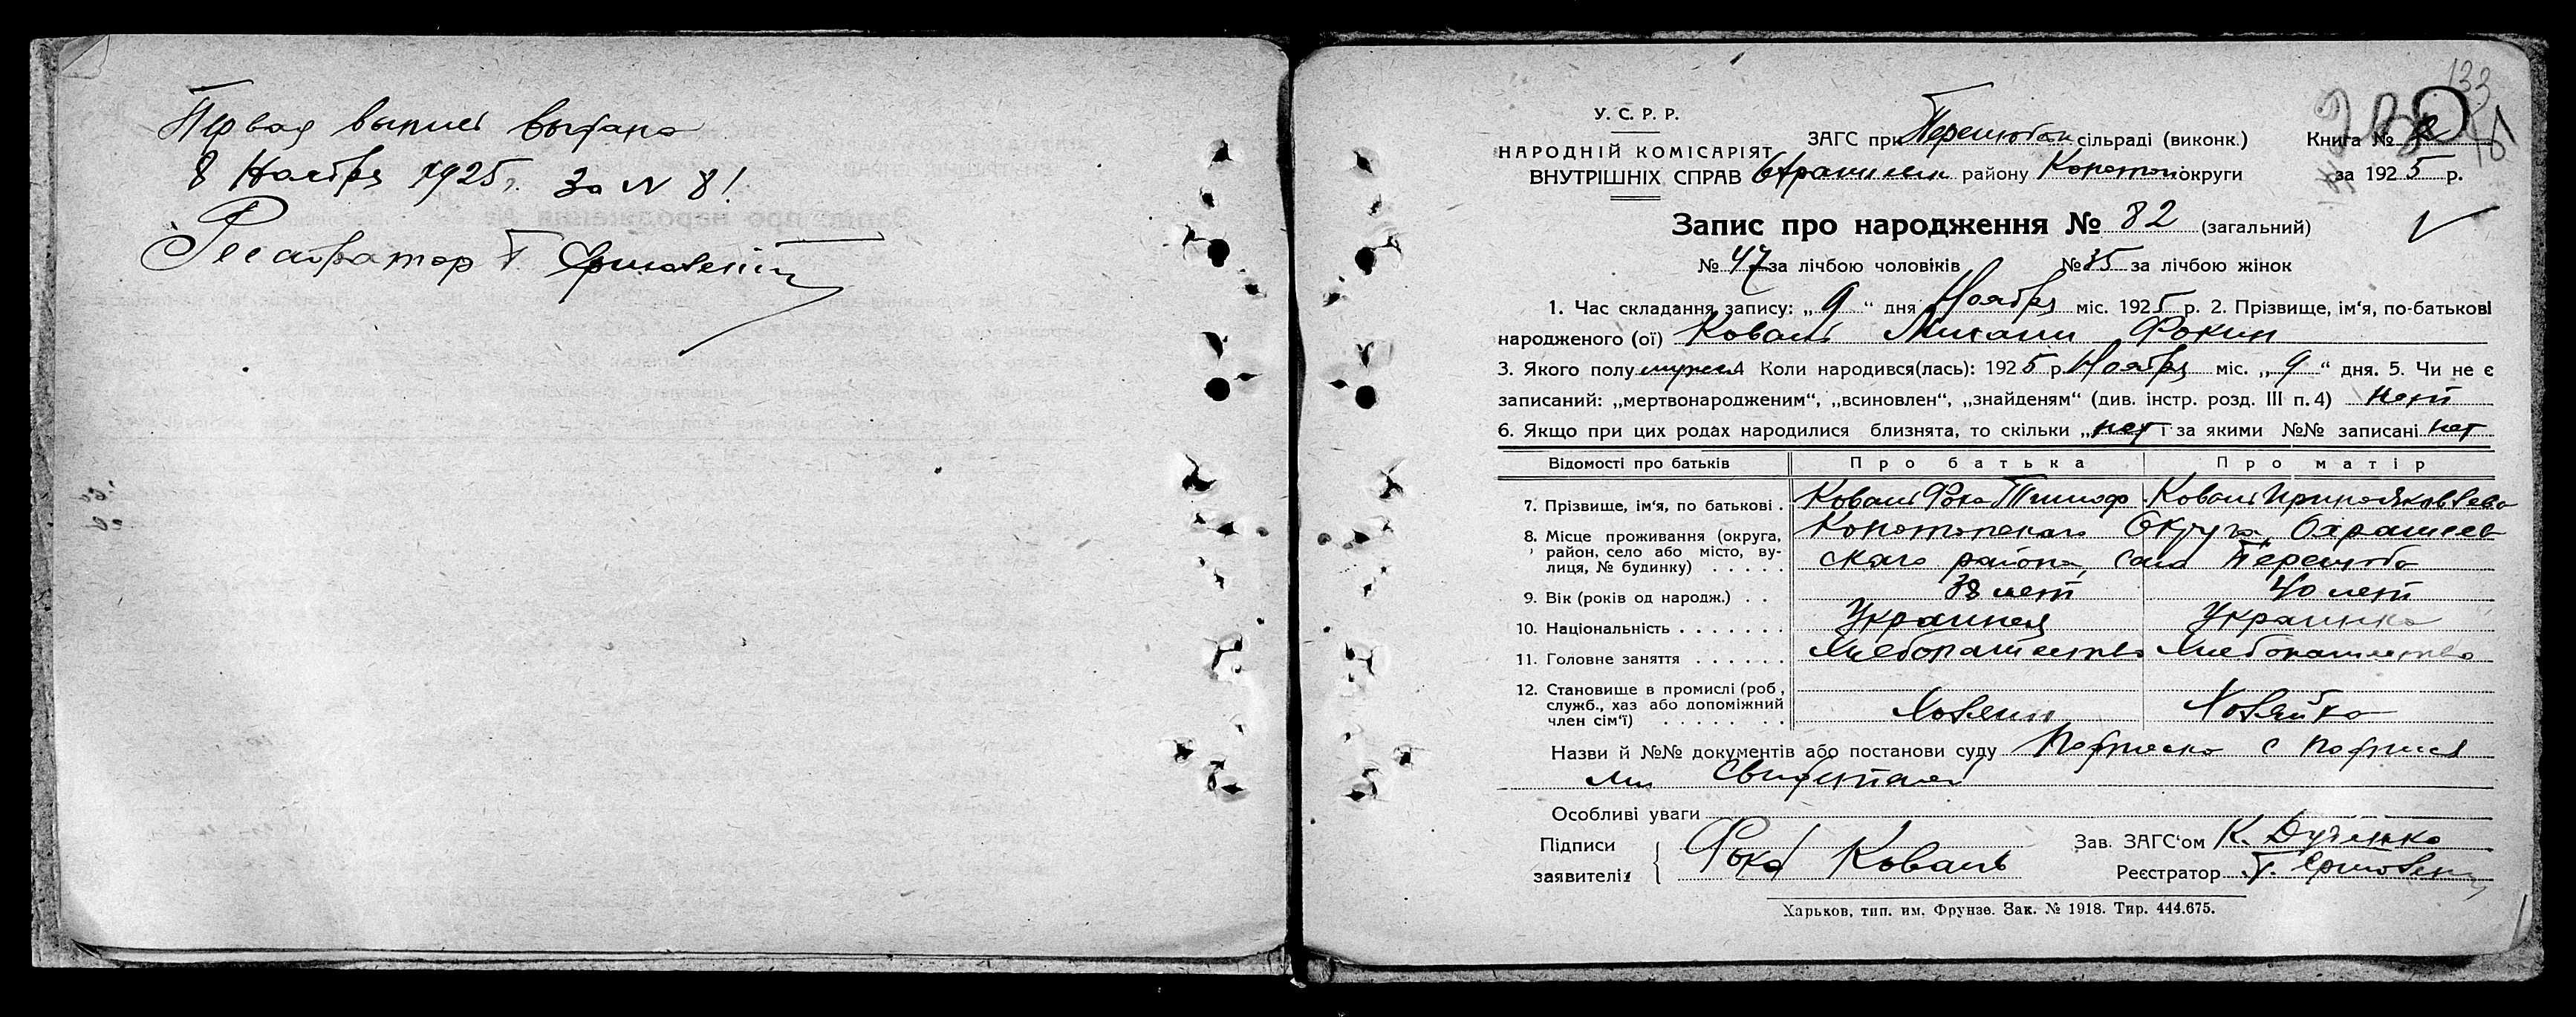 Первая выпись выдана
8 Ноября 1925 г. за № 8!
Регистратор Г.
133
У. С. Р. Р.
НАРОДНІЙ КОМІСАРІЯТ
ВНУТРІШНІХ СПРАВ
ЗАГС при сільраді (виконк.) Книга №
району Конотоп округи за 1925 р.
Запис про народження № 82 (загальний)
№ 47 за лічбою чоловіків № 35 за лічбою жінок
1. Час складання запису: „9“ дня Ноября міс. 1925 р. 2. Прізвище, ім‘я, по-батькові
народженого (ої) Коваль Михаил Фокин
3. Якого полу мужск 4 Коли народився(лась): 1925 р Ноября міс. „9“ дня. 5. Чи не є
записаний: „мертвонародженим“, „всиновлен“, „знайденям“ (див. інстр. розд. III п. 4) нет
6. Якщо при цих родах народилися близнята, то скільки „нет і за якими №№ записані нет
Відомості про батьків Про батька Про матір
7. Прізвище, ім‘я, по батькові . Коваль Фока Тимоф Коваль Ирина Яковлева
8. Місце проживання (округа, Конотопскаго Округа, Охрамиев
район, село або місто, ву- скаго района, села
лиця, № будинку) . . . . .
9. Вік (років од народж.) . . 38 лет 40 лет
10. Національність . . . . . . . Украинец Украинка
11. Головне заняття . . . . . . Хлебопашество Хлебопашество
12. Становище в промислі (роб,
служб., хаз або допоміжний Хозяин Хозяйка
член сім‘ї) . . . . . . . .
Назви й №№ документів або постанови суду Подписка с подпися
ми Свидетелей
Особливі уваги
Підписи Фока Коваль Зав. ЗАГС‘ом К. Дученко
заявителів Реєстратор Г.
Харьков, тип. им. Фрунзе. Зак. № 1918. Тир. 444.675.